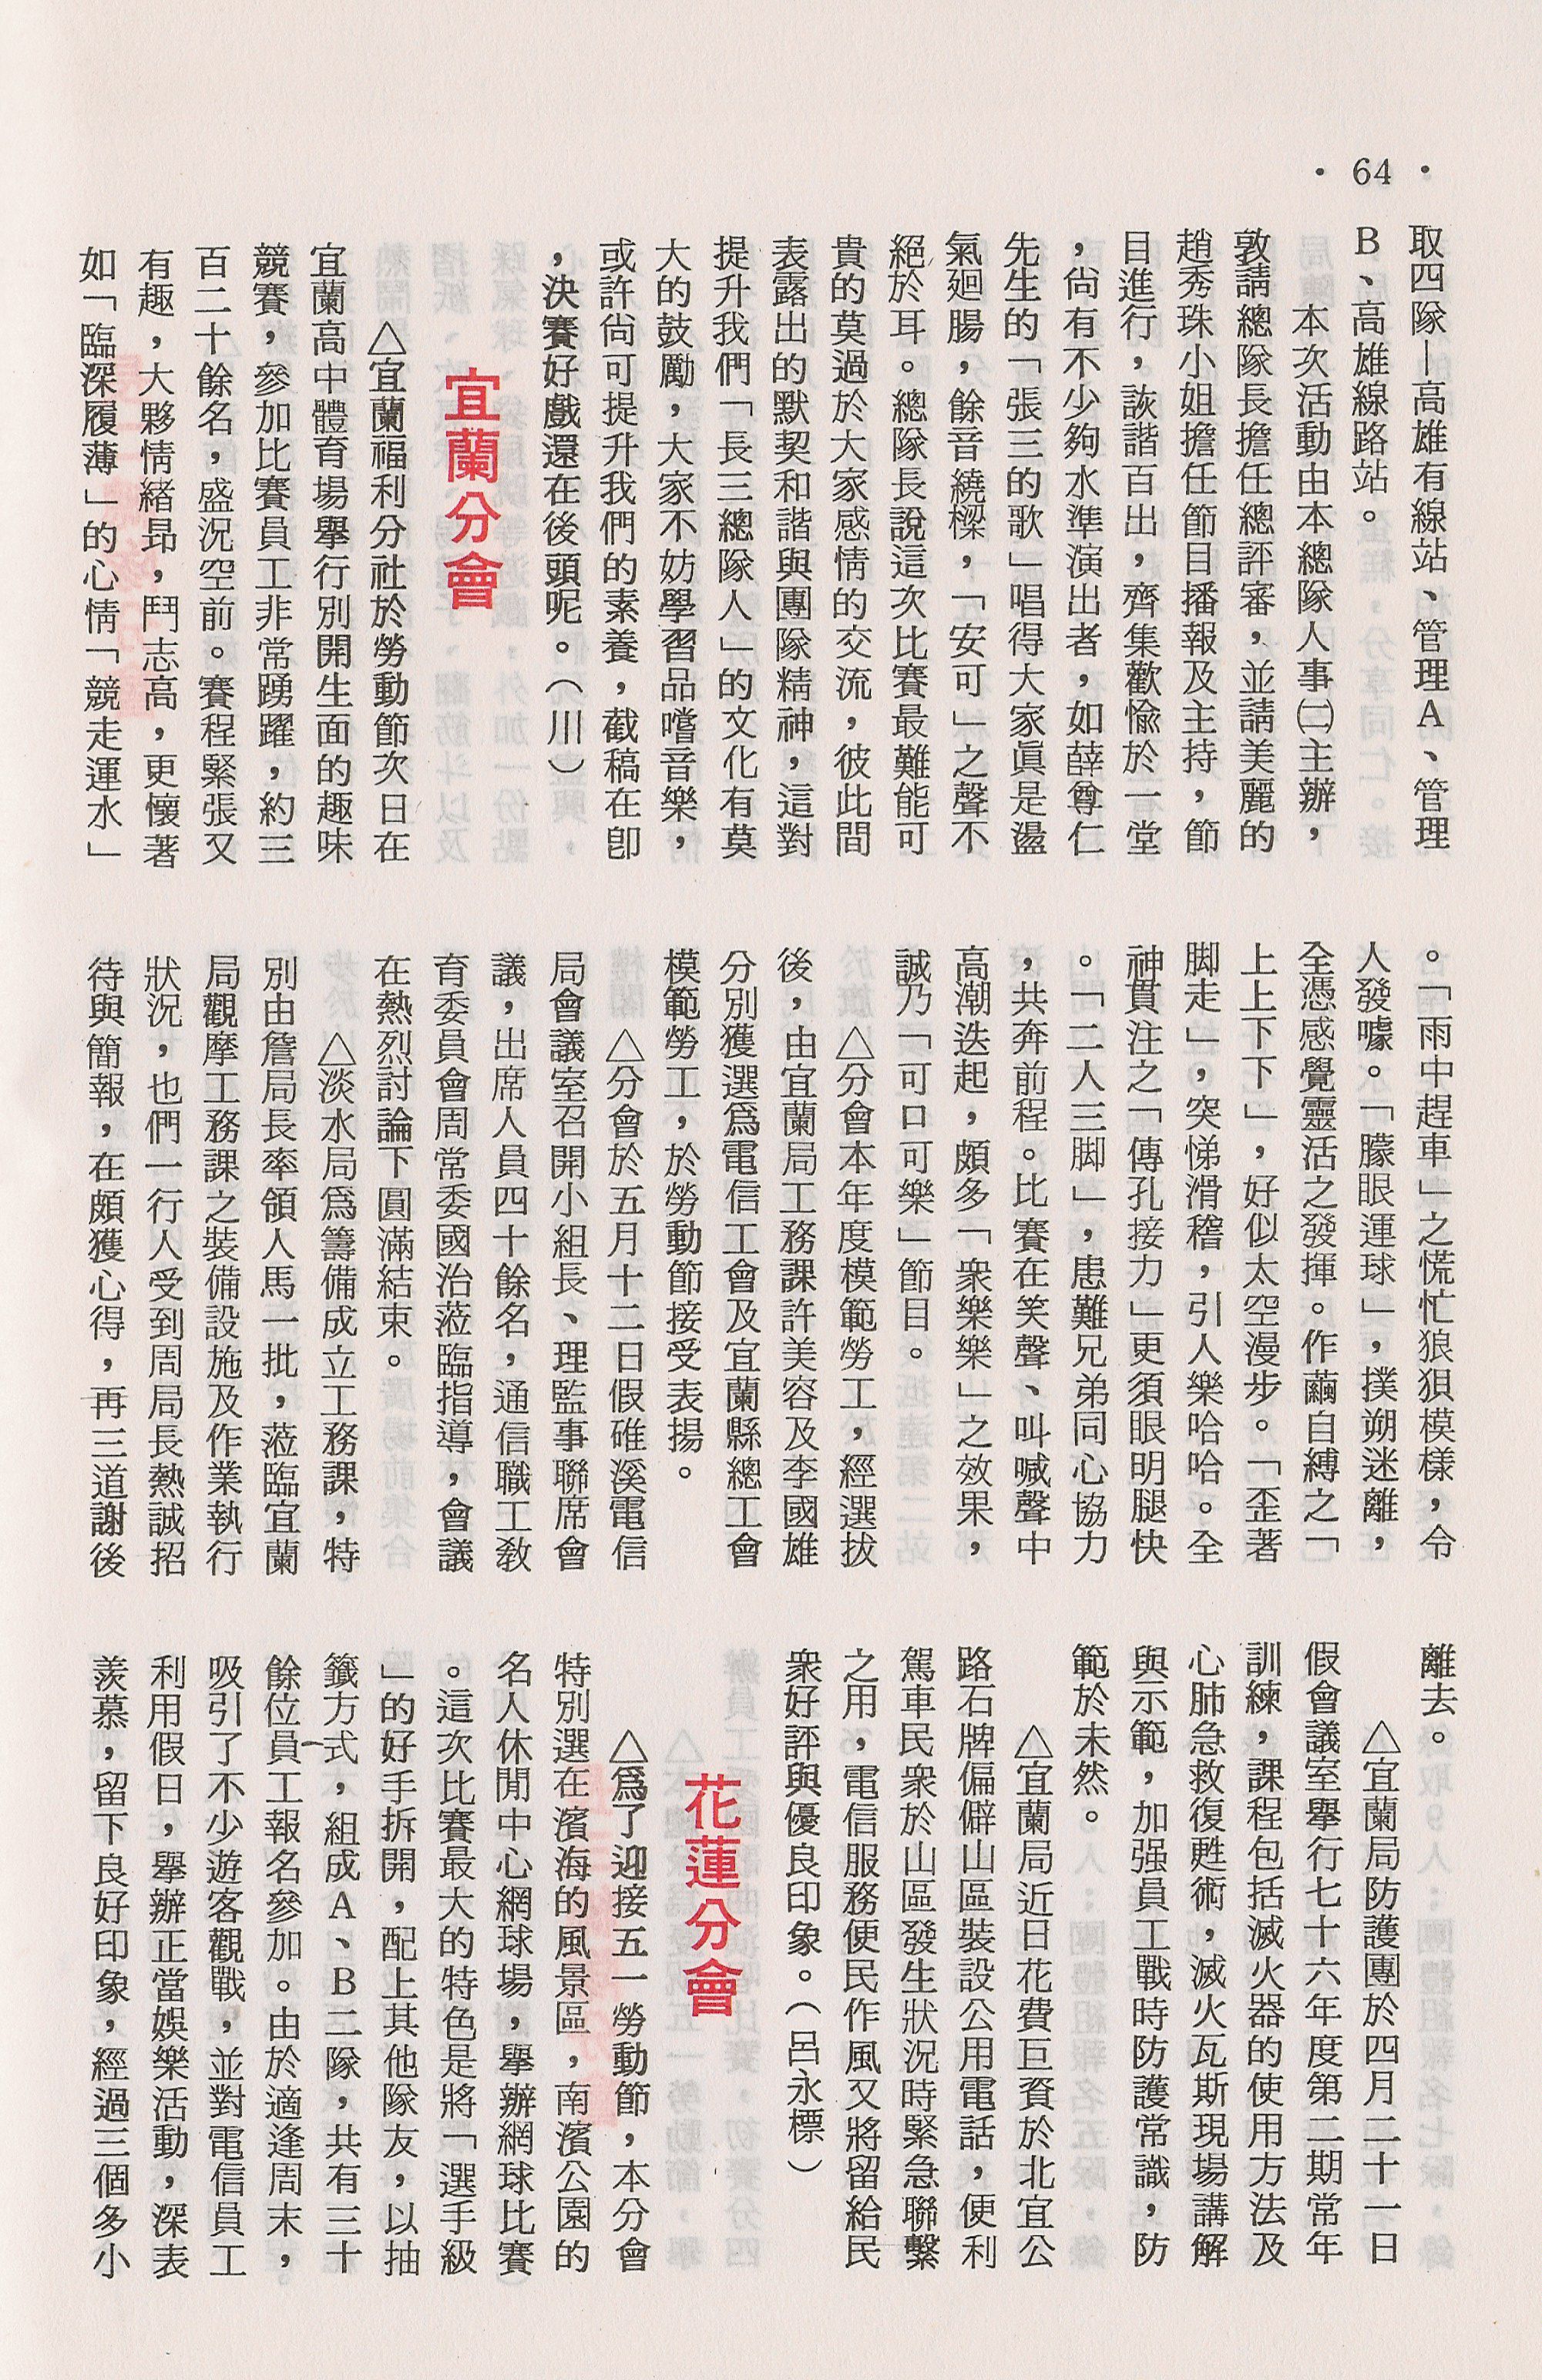 • 64 •
取四隊—高雄有線站、管理A、管理
B、高雄線路站。
本次活動由本總隊人事㈡主辦，
敦請總隊長擔任總評審，並請美麗的
趙秀珠小姐擔任節目播報及主持，節
目進行，詼諧百出，齊集歡愉於一堂
，尙有不少夠水準演出者，如薛尊仁
先生的「張三的歌」唱得大家眞是盪
氣廻腸，餘音繞樑，「安可」之聲不
絕於耳。總隊長說這次比賽最難能可
貴的莫過於大家感情的交流，彼此間
表露出的默契和諧與團隊精神，這對
提升我們「長三總隊人」的文化有莫
大的鼓勵，大家不妨學習品嚐音樂，
或許尙可提升我們的素養，截稿在卽
，決賽好戲還在後頭呢。（川）
宜蘭分會
△宜蘭福利分社於勞動節次日在
宜蘭高中體育場舉行別開生面的趣味
競賽，參加比賽員工非常踴躍，約三
百二十餘名，盛況空前。賽程緊張又
有趣，大夥情緒昂，鬥志高，更懷著
如「臨深履薄」的心情「競走運水」
。「雨中趕車」之慌忙狼狽模樣，令
人發噱。「朦眼運球」，撲朔迷離，
全憑感覺靈活之發揮。作繭自縛之「
上上下下」，好似太空漫步。「歪著
脚走」，突悌滑稽，引人樂哈哈。全
神貫注之「傳孔接力」更須眼明腿快
。「二人三脚」，患難兄弟同心協力
，共奔前程。比賽在笑聲、叫喊聲中
高潮迭起，頗多「衆樂樂」之效果，
誠乃「可口可樂」節目。
△分會本年度模範勞工，經選拔
後，由宜蘭局工務課許美容及李國雄
分別獲選爲電信工會及宜蘭縣總工會
模範勞工，於勞動節接受表揚。
△分會於五月十二日假碓溪電信
局會議室召開小組長、理監事聯席會
議，出席人員四十餘名，通信職工敎
育委員會周常委國治蒞臨指導，會議
在熱烈討論下圓滿結束。
△淡水局爲籌備成立工務課，特
別由詹局長率領人馬一批，蒞臨宜蘭
局觀摩工務課之裝備設施及作業執行
狀況，也們一行人受到周局長熱誠招
待與簡報，在頗獲心得，再三道謝後
離去。
△宜蘭局防護團於四月二十一日
假會議室舉行七十六年度第二期常年
訓練，課程包括滅火器的使用方法及
心肺急救復甦術，滅火瓦斯現場講解
與示範，加强員工戰時防護常識，防
範於未然。
△宜蘭局近日花費巨資於北宜公
路石牌偏僻山區裝設公用電話，便利
駕車民衆於山區發生狀況時緊急聯繫
之用，電信服務便民作風又將留給民
衆好評與優良印象。（呂永標）
花蓮分會
△爲了迎接五一勞動節，本分會
特別選在濱海的風景區，南濱公園的
名人休閒中心網球場，舉辦網球比賽
。這次比賽最大的特色是將「選手級
」的好手拆開，配上其他隊友，以抽
籤方式，組成A、B二隊，共有三十
餘位員工報名參加。由於適逢周末，
吸引了不少遊客觀戰，並對電信員工
利用假日，舉辦正當娛樂活動，深表
羨慕，留下良好印象，經過三個多小